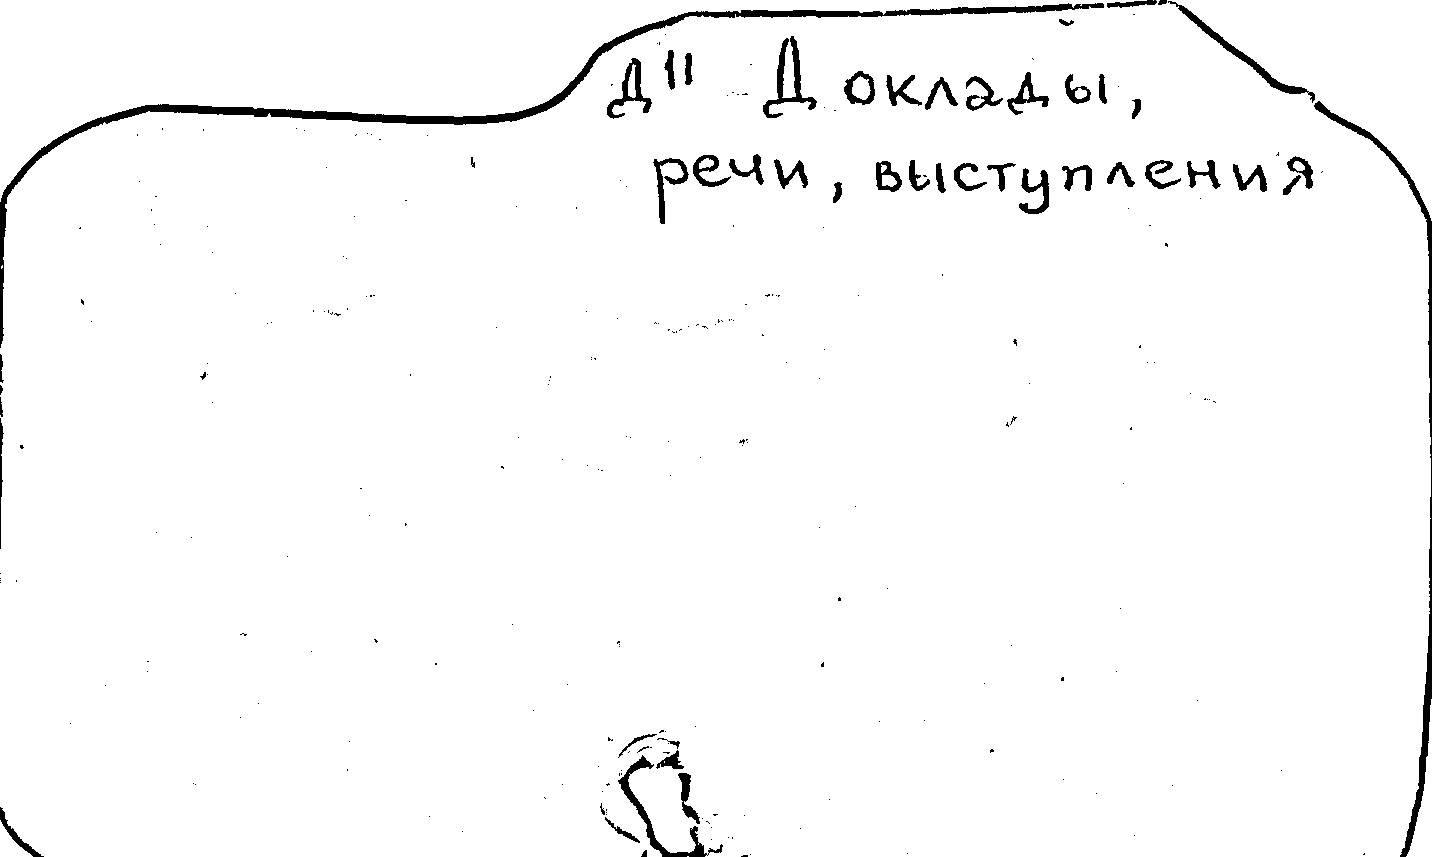 Д" Доклады,
речи, выступления